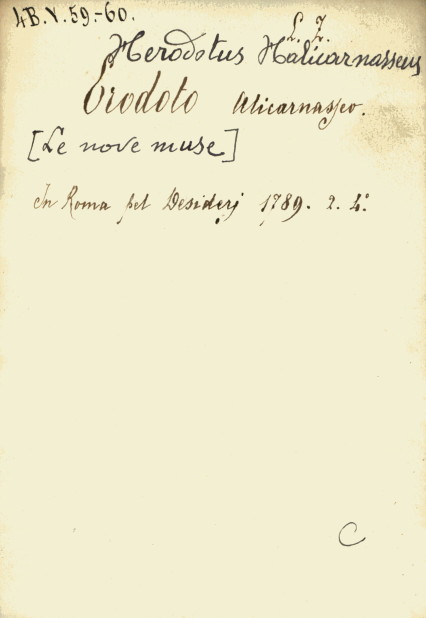 4B.V.59.-60.
L. I.
Herodotus Halicarnasseus
Erodoto Alicarnasseo.
[Le nove muse]
In Roma pel Desiderj 1789. 2. 4°.
C